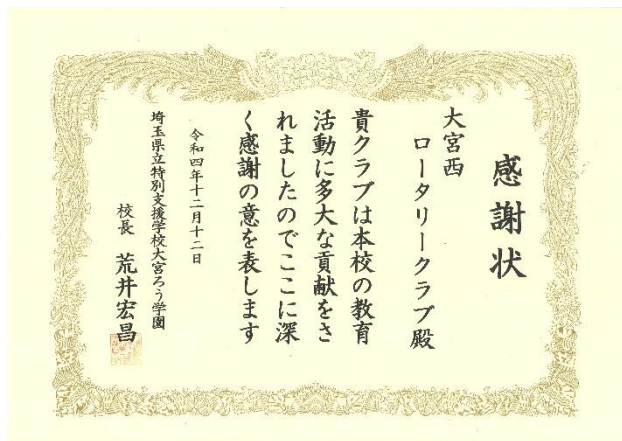 感謝状
大宮西
ロータリークラブ殿
貴クラブは本校の教育
活動に多大な貢献をさ
れましたのでここに深
く感謝の意を表します
令和四年十二月十二日
埼玉県立特別支援学校大宮ろう学園
校長 荒井宏昌